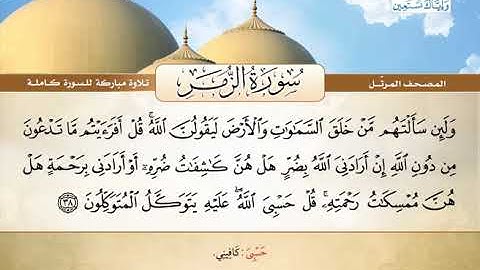 وَإِيَّاكَ نَسْتَعِينُ
المصحف المرتّل
سُورَةُ الزُّمَرِ
تلاوة مباركة للسورة كاملة
وَلَئِن سَأَلْتَهُم مَّنْ خَلَقَ السَّمَاوَاتِ وَالْأَرْضَ لَيَقُولُنَّ اللَّهُ ۚ قُلْ أَفَرَأَيْتُم مَّا تَدْعُونَ
مِن دُونِ اللَّهِ إِنْ أَرَادَنِيَ اللَّهُ بِضُرٍّ هَلْ هُنَّ كَاشِفَاتُ ضُرِّهِ أَوْ أَرَادَنِي بِرَحْمَةٍ هَلْ
هُنَّ مُمْسِكَاتُ رَحْمَتِهِ ۚ قُلْ حَسْبِيَ اللَّهُ ۖ عَلَيْهِ يَتَوَكَّلُ الْمُتَوَكِّلُونَ ٣٨
حَسْبِيَ : كَافِينِي.